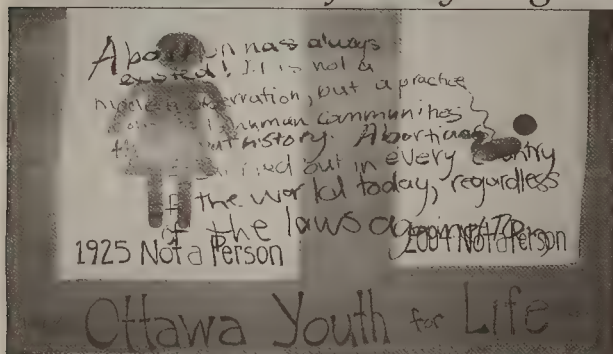 Abortion has always
existed! It is not a
but a practice
human communities
history. Abortions
out in every country
the world today, regardless
of the laws against it
1925 Not a Person
2004 Not a Person
Ottawa Youth for Life